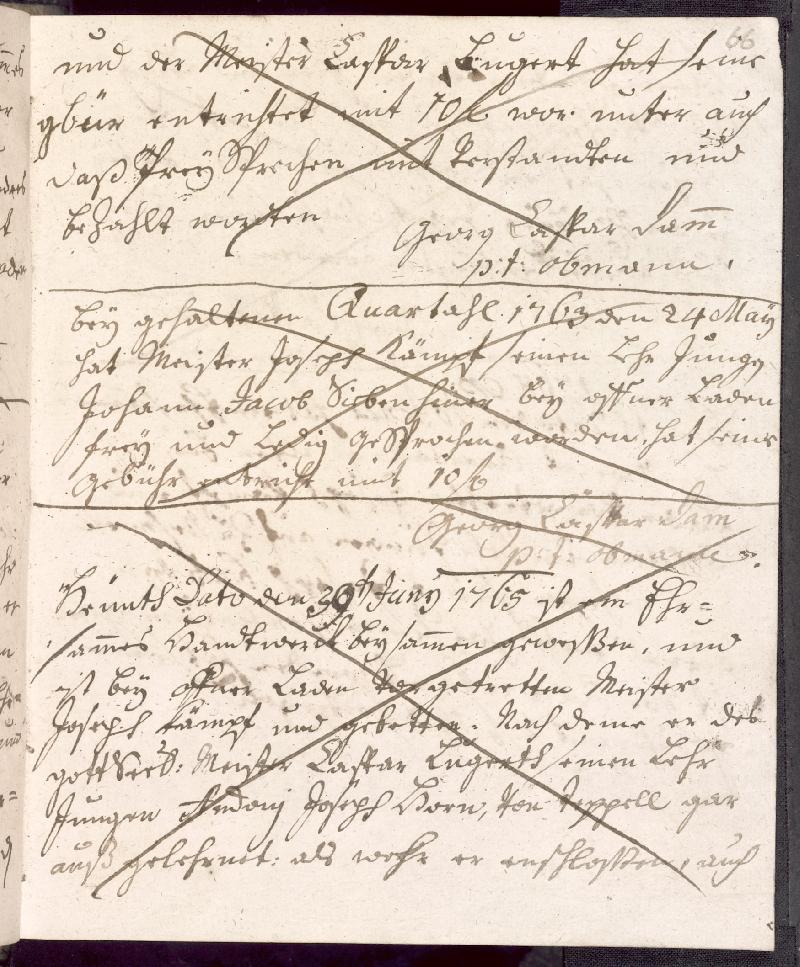 66
und der Meister Caspar Lugert hat seine
gbür entrichtet mit 70 wor unter auch
daß Frey Sprechen mit verstandten und
bezahlt worden
Georg Caspar Damm
p:t: obmann.
bey gehaltenen Quartahl 1763 den 24 May
hat Meister Joseph Kämpf seinen Lehr Jung
Johann Jacob Sibenhiner bey offner Laden
frey und Ledig gesprochen worden, hat seine
gebühr entricht mit 10
Georg Caspar Dam
p:t: obmann.
Heunth Dato den Juny 1765 ist ein Ehr=
sammes Handtwerck bey sammen gewessen, und
ist bey offner Laden vor getretten Meister
Joseph Kämpf und gebetten. Nach deme er des
gott Seel: Meister Caspar Lugerth seinen Lehr
Jungen Joseph Horn, von Teppell gar
auß gelehrnet: als wehr er enschlossen, auch